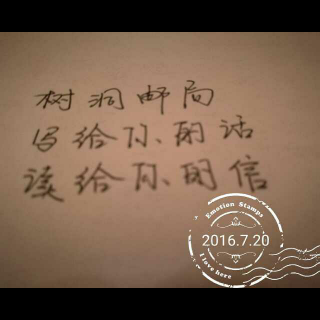 树洞邮局
写给你的话
读给你的信
Emotion Stamps
2016.7.20
I love here